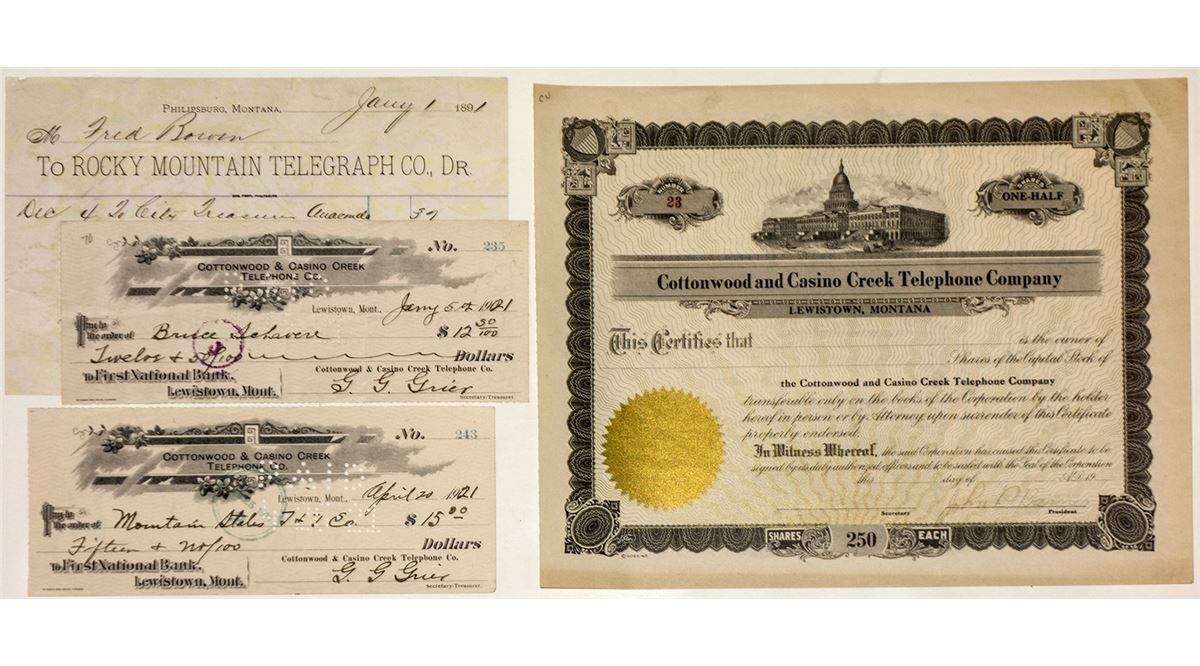 PHILIPSBURG, MONTANA, Jany 1 1891
M Fred Bowen
TO ROCKY MOUNTAIN TELEGRAPH CO., DR.
Dec 4 To City Treasurer Anaconda 37
70
No. 235
COTTONWOOD & CASINO CREEK
TELEPHONE CO.
Lewistown, Mont., Jany 5th 1921
Pay to
the order of Bruce $ 12 50/100
Twelve & 50/100 Dollars
To First National Bank,
Lewistown, Mont.
Cottonwood & Casino Creek Telephone Co.
G. G. Grier
Secretary-Treasurer.
No. 243
COTTONWOOD & CASINO CREEK
TELEPHONE CO.
Lewistown, Mont., April 20 1921
Pay to
the order of Mountain States T & T Co. $ 15 00
Fifteen & no/100 Dollars
To First National Bank,
Lewistown, Mont.
Cottonwood & Casino Creek Telephone Co.
G. G. Grier
Secretary-Treasurer.
CN
NUMBER
23
SHARES
ONE-HALF
Cottonwood and Casino Creek Telephone Company
LEWISTOWN, MONTANA
This Certifies that is the owner of
Shares of the Capital Stock of
the Cottonwood and Casino Creek Telephone Company
transferable only on the books of the Corporation by the holder
hereof in person or by Attorney upon surrender of this Certificate
properly endorsed.
In Witness Whereof, the said Corporation has caused this Certificate to be
signed by its duly authorized officers and to be sealed with the Seal of the Corporation
this day of A.D. 19
Secretary President
SHARES 250 EACH